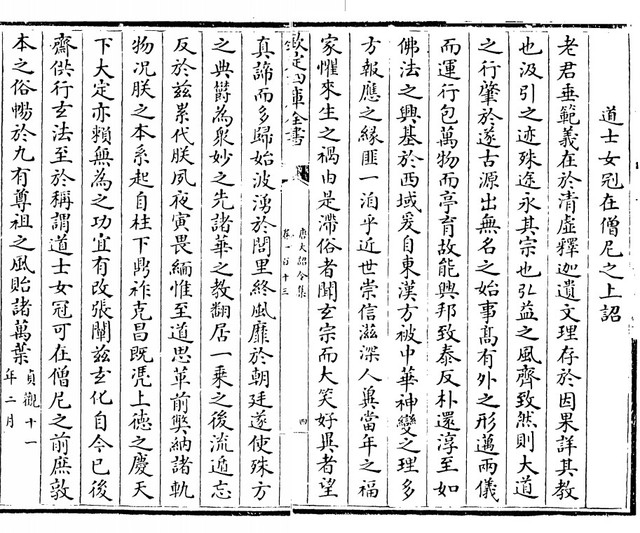 道士女冠在僧尼之上詔
老君垂範義在於清虛釋迦遺文理存於因果詳其教
也汲引之迹殊途永其宗也弘益之風齊致然則大道
之行肇於遂古源出無名之始事髙有外之形邁兩儀
而運行包萬物而亭育故能興邦致泰反朴還淳至如
佛法之興基於西域爰自東漢方被中華神變之理多
方報應之縁匪一洎乎近世崇信滋深人冀當年之福
家懼來生之禍由是滯俗者聞玄宗而大笑好異者望
欽定四庫全書
唐大詔令集
卷一百十三
四
真諦而多歸始波湧於閭里終風靡於朝廷遂使殊方
之典欝為衆妙之先諸華之教翻居一乗之後流遁忘
反於兹累代朕夙夜寅畏緬惟至道思革前弊納諸軌
物况朕之本系起自柱下鼎祚克昌既凴上德之慶天
下大定亦賴無為之功宜有改張闡兹玄化自今已後
齋供行立至於稱謂道士女冠可在僧尼之前庶敦
本之俗暢於九有尊祖之風貽諸萬葉
貞觀十一
年二月